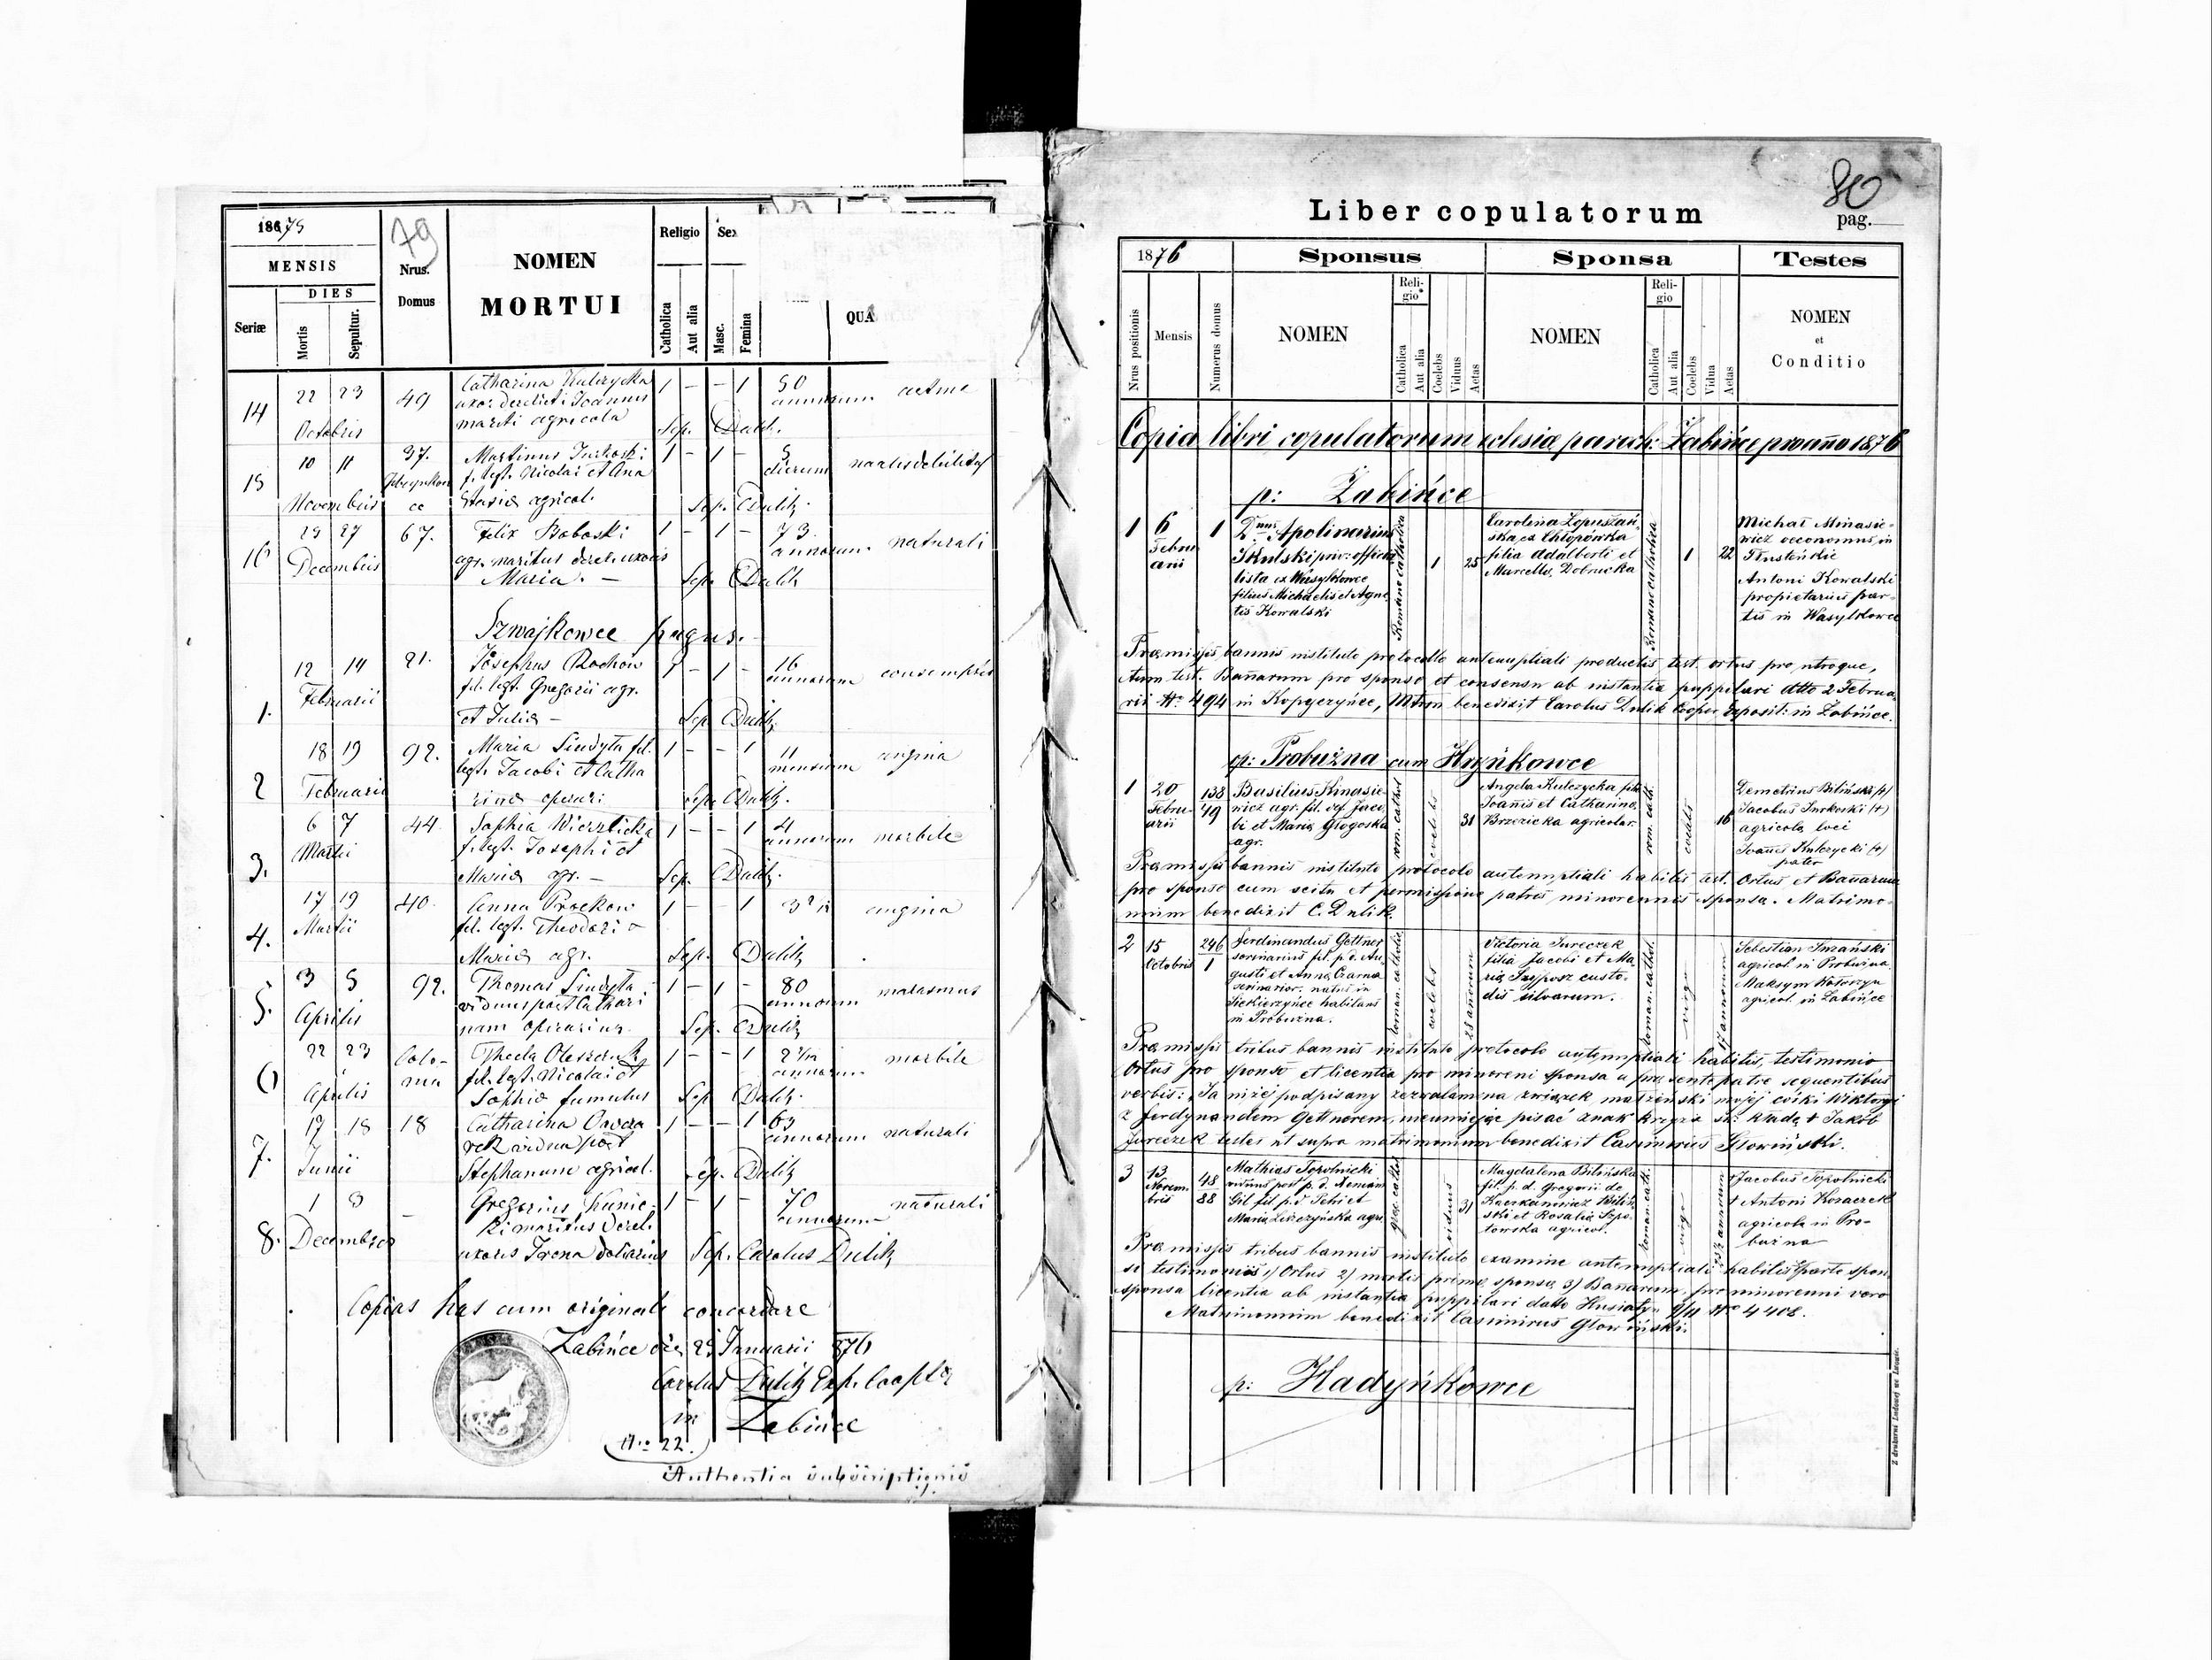 1875
79
MENSIS
DIES
Seriæ
Mortis
Sepultur.
Nrus.
Domus
NOMEN
MORTUI
Religio
Catholica
Aut alia
Sex
Masc.
Femina
QUA
14
22 23
Octobris
49
Catharina Kulczycka 1 – – 1 50
uxor derelicti Joannis annorum
mariti agricola Sep. Dulik.
15
10 11
Novembris
37.
Martinus 1 – 1 – 5
f. legt. Nicolai et Ana dierum
stasia agricol. Sep. Dulik.
16
25 27
Decembris
67.
Felix Baboski 1 – 1 – 73
agr. maritus derel. uxoris annorum naturali
Maria. – Sep. Dulik
Szwajkowce pagus.
1.
12 14
Februarii
21.
Josephus Rochów 1 – 1 – 16
fil. legt. Gregorii agr. annorum
et Julia – Sep. Dulik
2
18 19
Februarii
92.
Maria Sindyta fil. 1 – – 1 11 angina
legt. Jacobi et Catha mensium
rina operari Sep. Dulik.
3.
6 7
Martii
44
Sophia Wierzbicka 1 – – 1 4
f. legt. Josephi et annorum morbile
Maria agr. – Sep. Dulik.
4.
17 19
Martii
40
Anna Prockow 1 – – 1 angina
fil. legt. Theodori
Maria agr. Sep. Dulik
5.
3 5
Aprilis
92.
Thomas Sindyta 1 – 1 – 80 marasmus
viduus post Cathari annorum
nam operarius. Sep. Dulik
6
22 23
Aprilis
Colo-
nia
Thecla 1 – – 1 morbile
fil. legt. Nicolai et annorum
Sophia famulus Sep. Dulik.
7.
17 18
Junii
18
Catharina 1 – – 1 63
vidua post annorum naturali
Stephanum agricol. Sep. Dulik
8.
1 3
Decembris
–
Gregorius Kunic- 1 – 1 – 70 naturali
ki maritus derel. annorum
uxoris Irena doliarius Sep. Carolus Dulik
Copias has cum originali concordare
Zabińce die 25 Januarii 876
Carolus Dulik Exp. Coop.
in Zabińce
Nro 22.
80
Liber copulatorum
pag.
1876
Sponsus
Sponsa
Testes
Nrus positionis
Mensis
Numerus domus
NOMEN
Religio
Catholica
Aut alia
Coelebs
Viduus
Aetas
NOMEN
Religio
Catholica
Aut alia
Coelebs
Vidua
Aetas
NOMEN
et
Conditio
Copia libri copulatorum eclesiæ paroch: Żabińce pro anno 1876
p: Żabińce
1
6
Febru
arii
1
Dnus Apolinarius
Skulski priv. officia
lista ex Wasylkowce
filius Michaelis et Agne
tis Kowalski
Romano catholica
1
25
Carolina Łopuszań
ska ex Chłopówka
filia Adalberti et
Marcella Dobrucka
Romano catholica
1
22
Michał Minasie-
wicz oeconomus in
Tłusteńkie
Antoni Kowalski
propietarius par-
tis in Wasylkowce
Præmissis bannis instituto protocollo antenuptiali productis test. ortus pro utroque,
tum test. Bannorum pro sponso et consensu ab instantia puppilari dtto 2 Februa
rii Nr 494 in Kopyczyńce, Mtrm benedixit Carolus Dulik Cooper Exposit: in Żabińce.
p: Probużna cum Hryńkowce
1
20
Febru-
arii
138
49
Basilius Kinasie
wicz agr. fil. Jaco
bi et Maria Głogoska
agr.
rom. cathol.
coelebs
31
Angela Kulczycka filia
Joanis et Catharina
Brzezicka agricolar.
rom. cath.
coelebs
16
Demetrius Biliński (+)
Jacobus (+)
agricola loci
Joanes Kulczycki (+)
pater
Præmissis bannis instituto protocolo antenuptiali habitis test. Ortus et Bannorum
pro sponso cum scitu et permissione patris minorennis sponsa. Matrimo-
nium benedixit C. Dulik.
2
15
Octobris
246
1
Ferdinandus Gettner
fil. p. d. Au-
gusti et Anna Czarna
natus in
Siekierzyńce habitans
in Probużna.
roman. catholic.
coelebs
Victoria Jureczek
filia Jacobi et Ma
ria custo-
dis silvarum.
roman. cathol.
virgo
17 annorum
Sebestian
agricol. in Probużna
Maksym
agricol. in Żabińce
Præmissis tribus bannis instituto protocolo antenuptiali habitis, testimonio
Ortus pro sponso et licentia pro minoreni sponsa a præsente patre sequentibus
verbis: Ja niżej podpisany zezwalam na związek małżeński mojej córki Wiktoryi
z Ferdynandem Gettnerem, nieumiejąc pisać znak krzyża św. kładę + Jakób
Jureczek testes ut supra matrimonium benedixit Casimirus Głowiński.
3
13
Novem-
bris
48
88
Mathias Topolnicki
viduus post p. d.
Gil fil p. d. Petri et
Maria agri.
viduus
31
Magdalena Bilińska
fil. p. d. Gregorii de
Kaczkaniewicz Biliń
ski et Rosalia Szpo-
towska agricol.
roman. cath.
virgo
+ Jacobus Topolnicki
+ Antoni
agricola in Pro-
bużna
Præmissis tribus bannis instituto examine antenuptiali habitis parte spon
si testimoniis 1) Ortus 2) mortis prima sponsa 3) Bannorum, pro minorenni vero
sponsa licentia ab instantia puppilari datto Husiatyn Nro 4408.
Matrimonium benedixit Casimirus Głowiński.
p: Hadyńkowce
Z drukarni Ludowej we Lwowie.